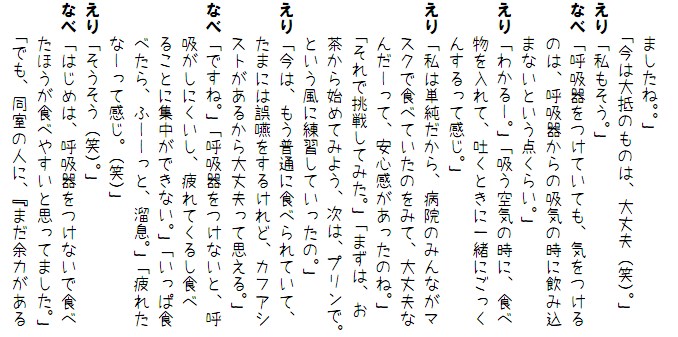 ましたね。」
「今は大抵のものは、大丈夫（笑）。」
えり「私もそう。」
なべ「呼吸器をつけていても、気をつける
のは、呼吸器からの吸気の時に飲み込
まないという点くらい。」
えり「わかるー。」「吸う空気の時に、食べ
物を入れて、吐くときに一緒にごっく
んするって感じ。」
えり「私は単純だから、病院のみんながマ
スクで食べていたのをみて、大丈夫な
んだーって、安心感があったのね。」
「それで挑戦してみた。」「まずは、お
茶から始めてみよう、次は、プリンで。
という風に練習していったの。」
えり「今は、もう普通に食べられていて、
たまには誤嚥をするけれど、カフアシ
ストがあるから大丈夫って思える。」
なべ「ですね。」「呼吸器をつけないと、呼
吸がしにくいし、疲れてくるし食べ
ることに集中ができない。」「いっぱ食
べたら、ふーーっと、溜息。」「疲れた
なーって感じ。（笑）」
えり「そうそう（笑）。」
なべ「はじめは、呼吸器をつけないで食べ
たほうが食べやすいと思ってました。」
「でも、同室の人に、『まだ余力がある